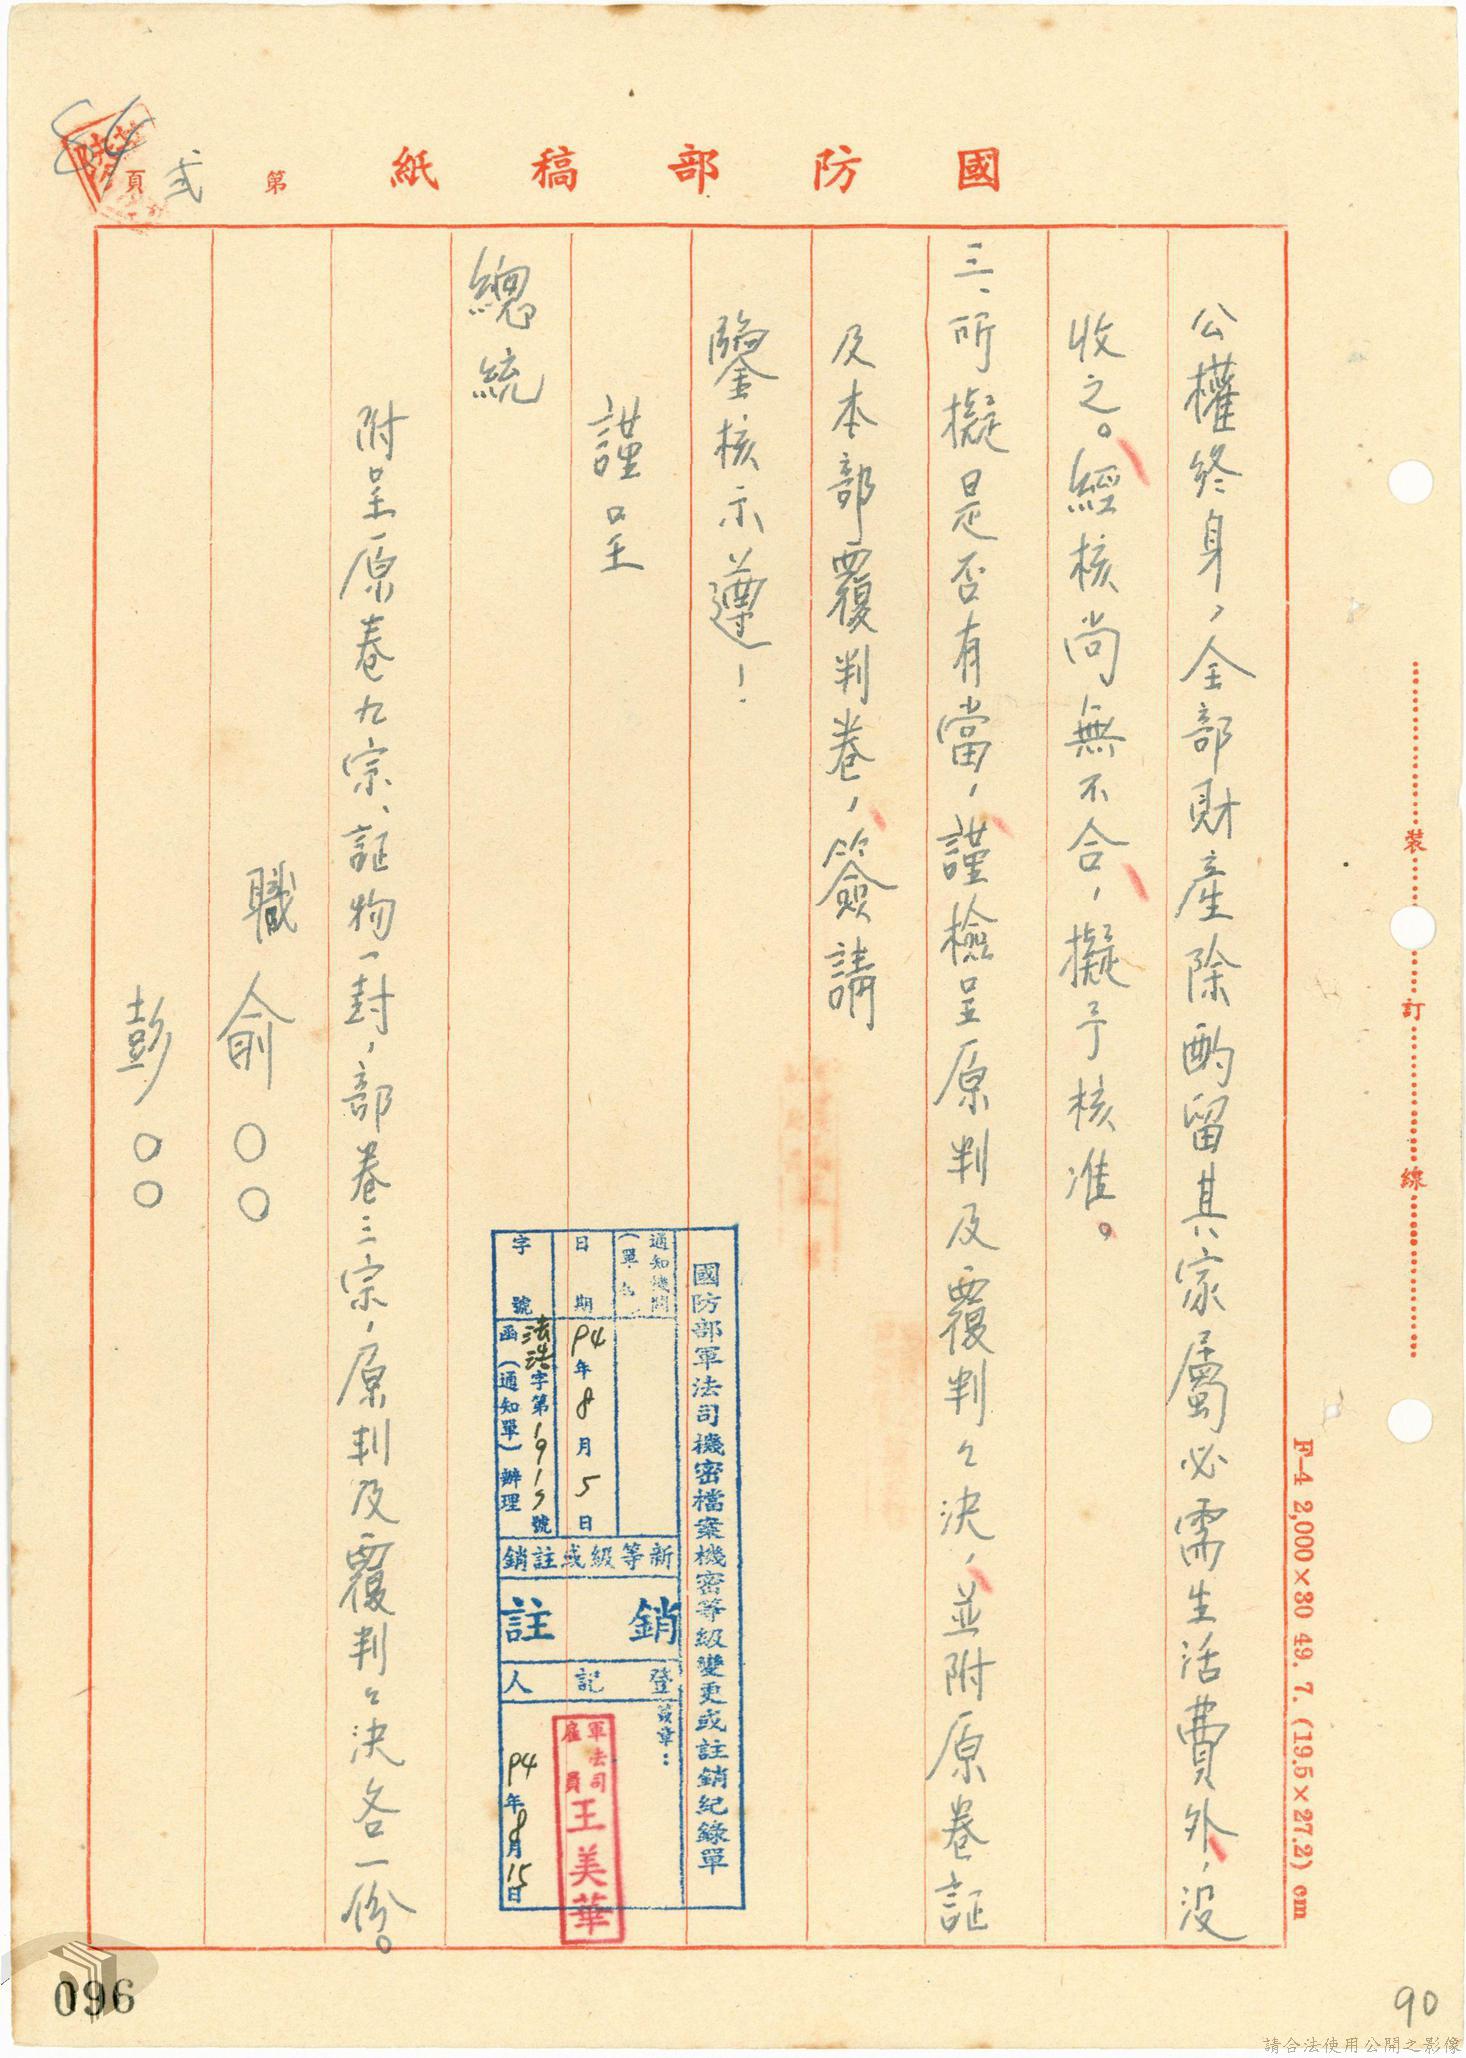 國防部稿紙
第弍頁
84
公權終身，全部財產除酌留其家屬必需生活費外，没
收之。經核尚無不合，擬予核准。
三、所擬是否有當，謹檢呈原判及覆判之決，並附原卷証
及本部覆判卷，簽請
鑒核示遵！
謹呈
總統
附呈原卷九宗、証物一封，部卷三宗，原判及覆判之決各一份。
職俞○○
彭○○
國防部軍法司機密檔案機密等級變更或註銷紀錄單
通知機關
（單位）
日期
94年8月5日
字號
法浩字第1915號
函（通知單）辦理
新等級或註銷
註銷
登記人
簽章：
軍法司
雇員
王美華
94年8月15日
裝
訂
線
F-4 2,000×80 49. 7. (19.5×27.2) cm
096
90
請合法使用公開之影像